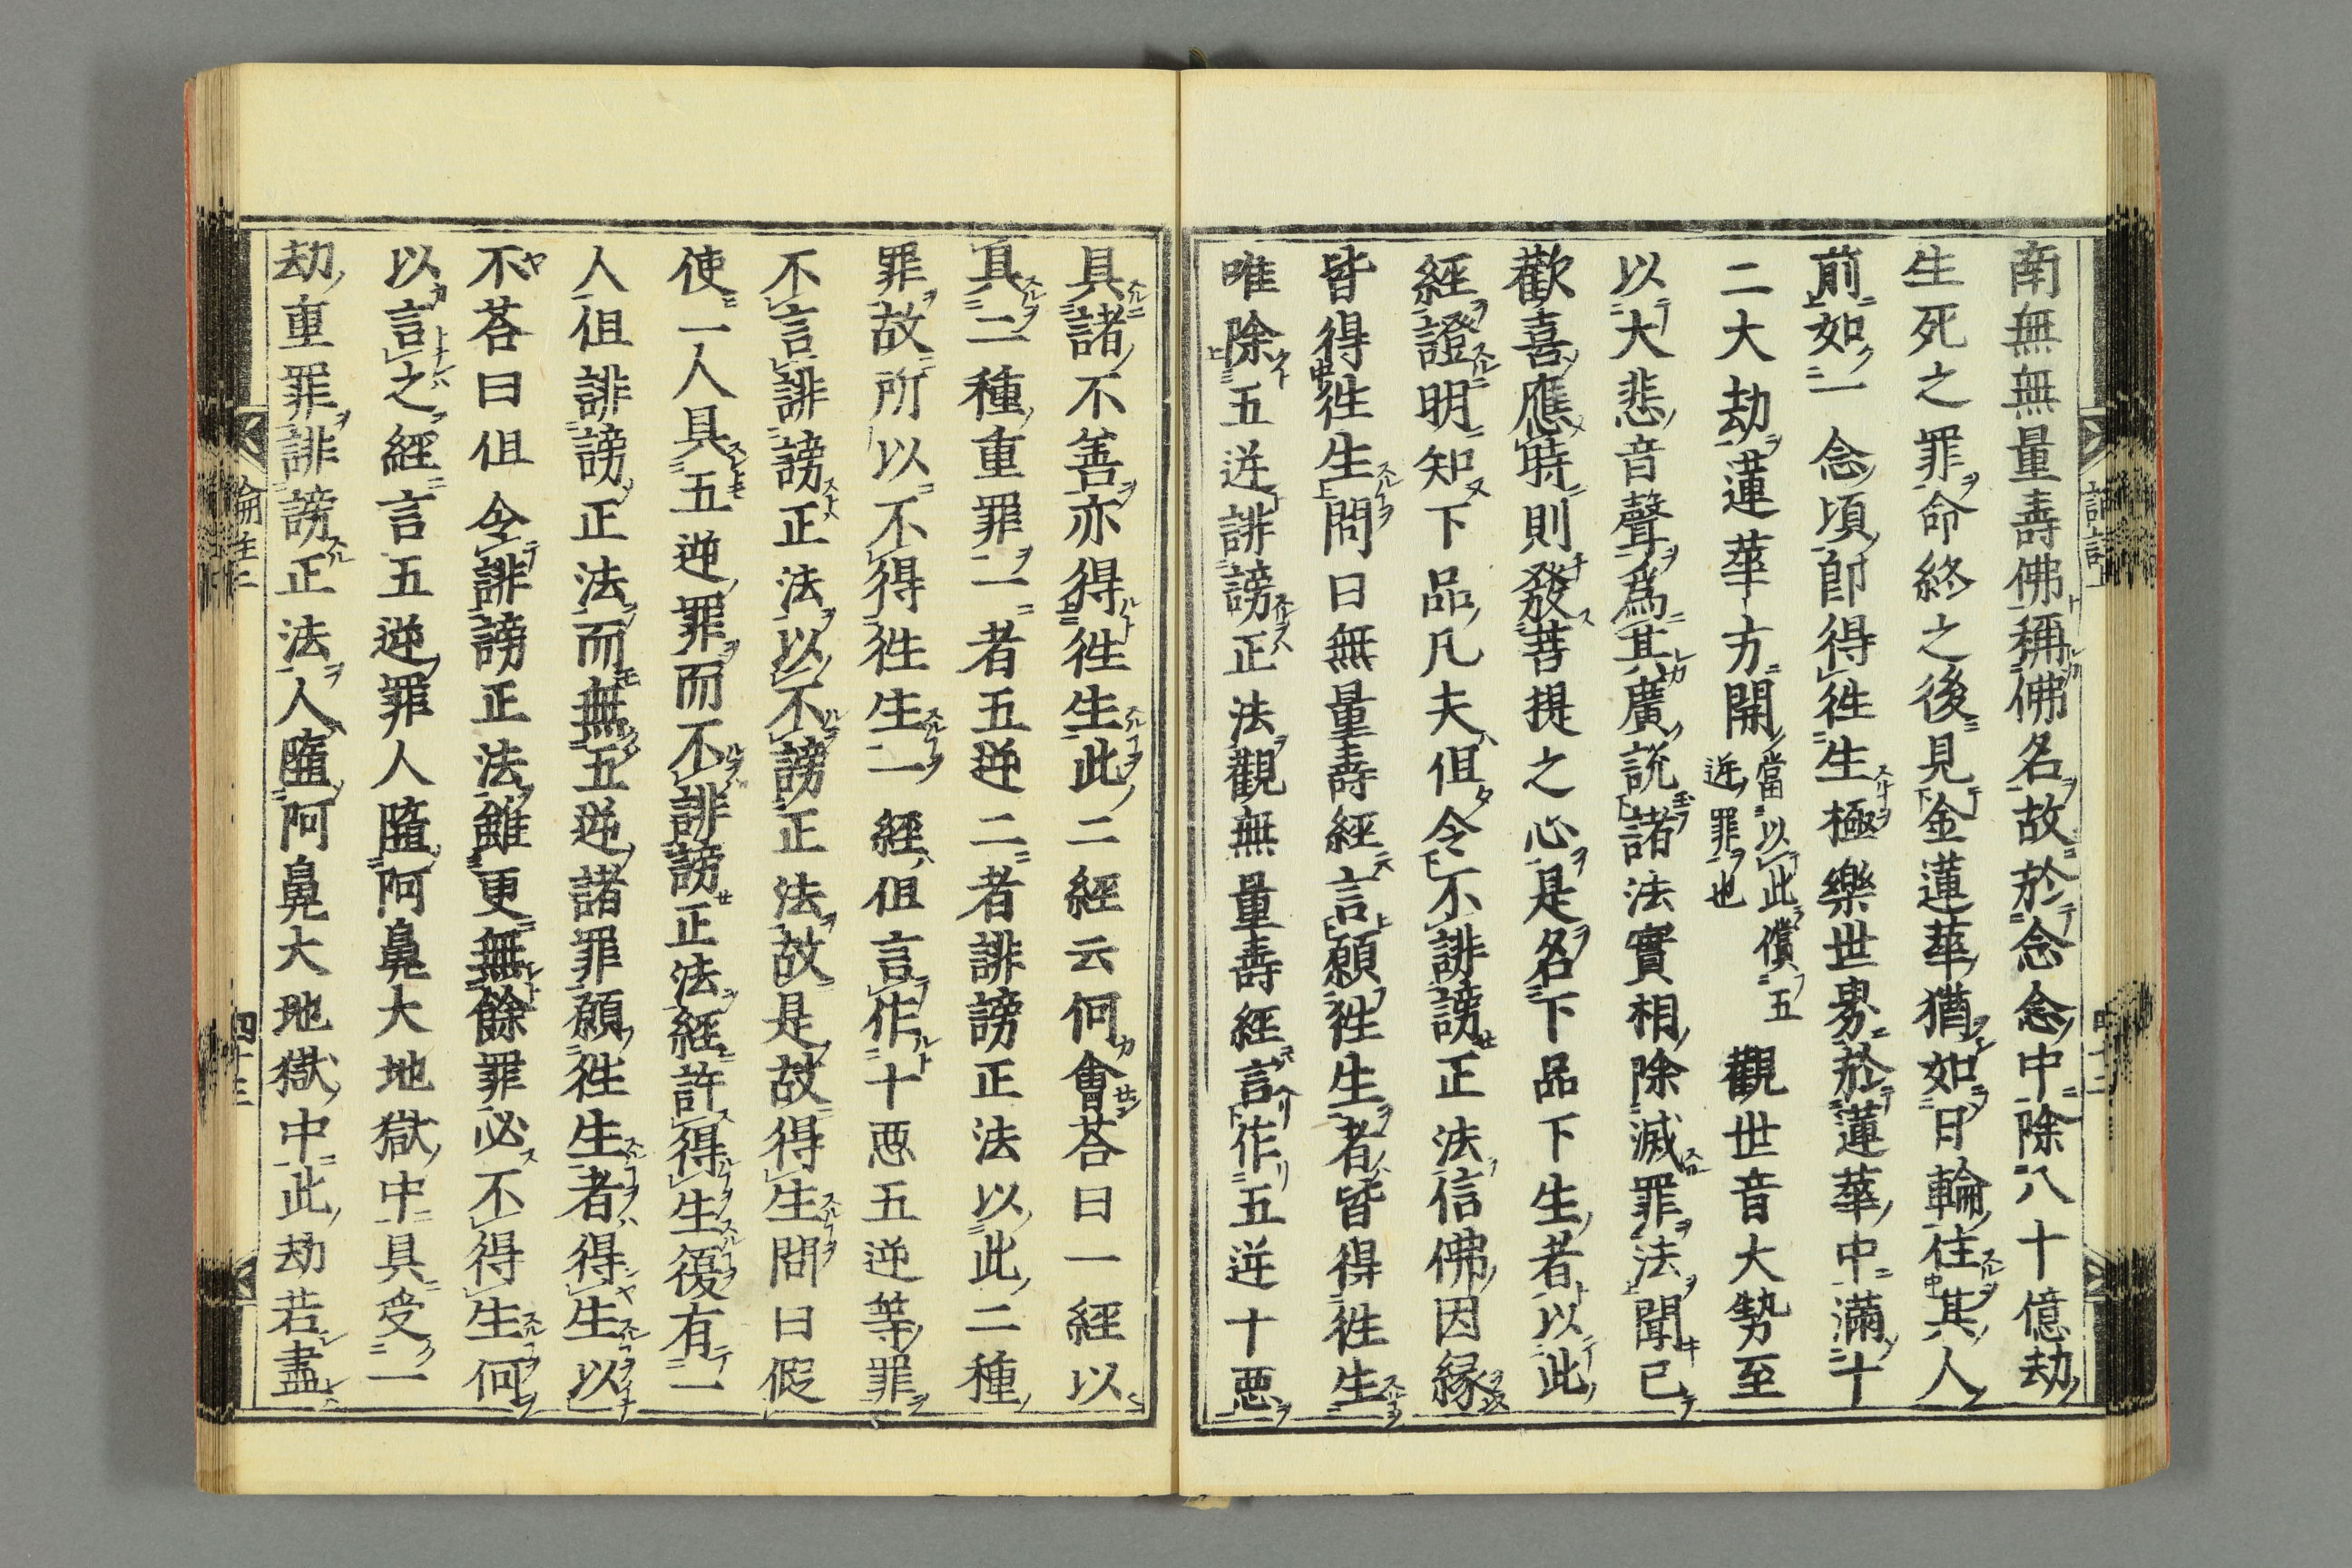 南無無量壽佛稱佛名故於念念中除八十億劫
生死之罪命終之後見金蓮華猶如日輪住其人
前如一念頃卽得徃生極樂世界於蓮華中滿十
二大劫蓮華方開當以此償五逆罪也觀世音大勢至
以大悲音聲爲其廣說諸法實相除滅罪法聞已
歡喜應時則發菩提之心是名下品下生者以此
經證明知下品凡夫但令不誹謗正法信佛因縁
皆得徃生問曰無量壽經言願徃生者皆得徃生
唯除五逆誹謗正法觀無量壽經言作五逆十惡
具諸不善亦得徃生此二經云何會荅曰一經以
具二種重罪一者五逆二者誹謗正法以此二種
罪故所以不得徃生一經但言作十惡五逆等罪
不言誹謗正法以不謗正法故是故得生問曰假
使一人具五逆罪而不誹謗正法經許得生復有一
人但誹謗正法而無五逆諸罪願徃生者得生以
不荅曰但令誹謗正法雖更無餘罪必不得生何
以言之經言五逆罪人墮阿鼻大地獄中具受一
劫重罪誹謗正法人墮阿鼻大地獄中此劫若盡
論註上
四十三